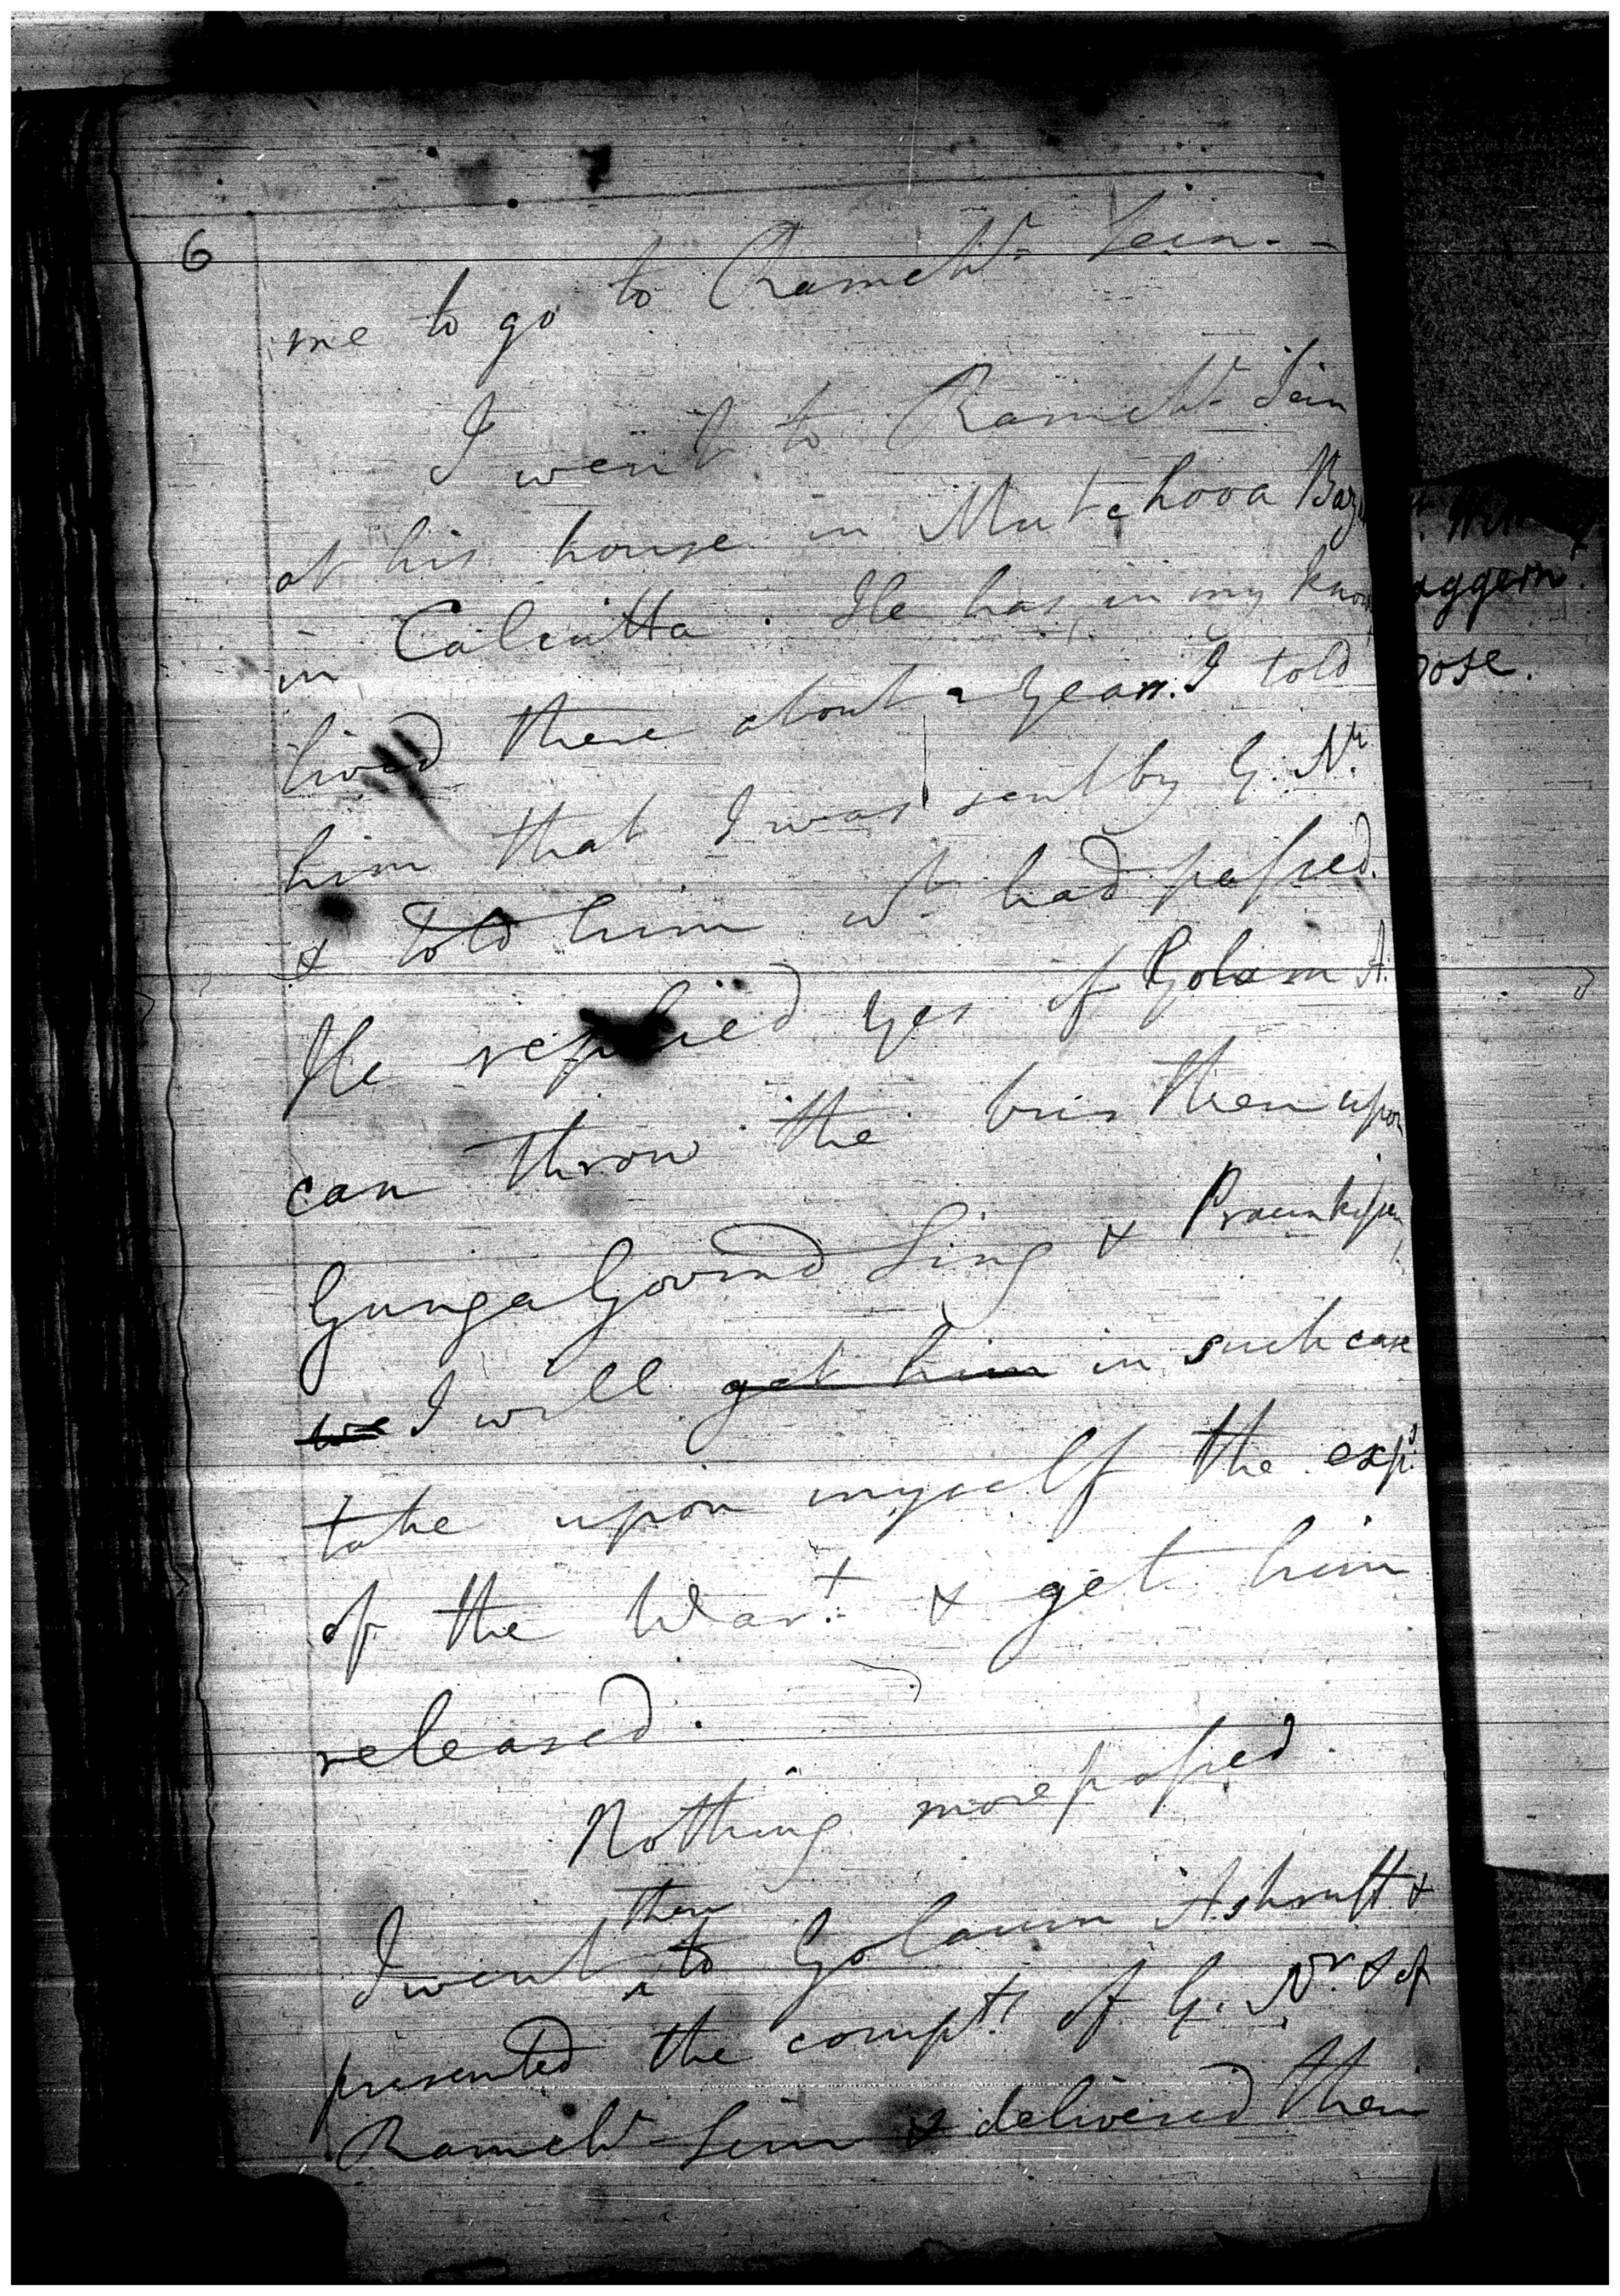 6
me to go to Ramchr Sein -
I went to Ramchr Sein
at his house in Mutchooa Baz
in Calcutta. He has, in my know
lived there about 2 years. I told
him that I was sent by G. Nr.
& told him wt had passed.
He replied yes if Golam A.
can throw the burthen upon
Gunga Govind Sing & Praunkissen
we I will get him in such case
take upon myself the exps
of the Warrt. & get him
released.
Nothing more passed.
then
I went to Golaum Ashruff &
presented the compts of G. Nr. & of
Ramchr Sein & delivered their
aggern.
ose.